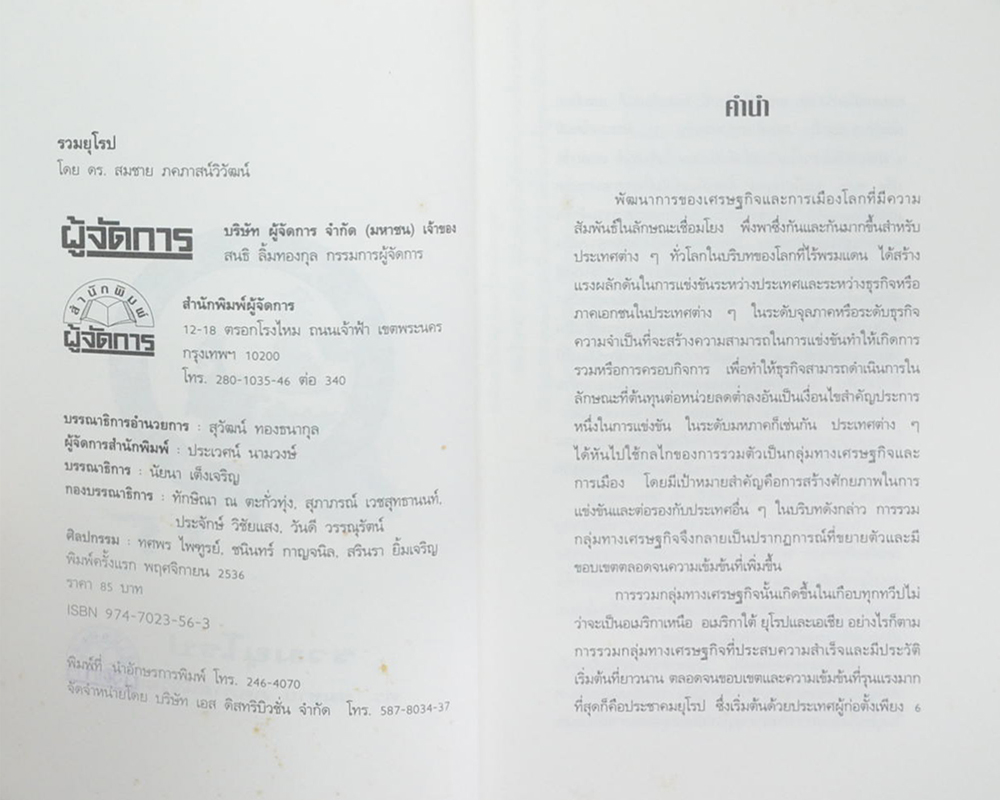 รวมยุโรป
โดย ดร. สมชาย ภคภาสน์วิวัฒน์
ผู้จัดการ
บริษัท ผู้จัดการ จำกัด (มหาชน) เจ้าของ
สนธิ ลิ้มทองกุล กรรมการผู้จัดการ
สำนักพิมพ์
ผู้จัดการ
สำนักพิมพ์ผู้จัดการ
12-18 ตรอกโรงไหม ถนนเจ้าฟ้า เขตพระนคร
กรุงเทพฯ 10200
โทร. 280-1035-46 ต่อ 340
บรรณาธิการอำนวยการ : สุวัฒน์ ทองธนากุล
ผู้จัดการสำนักพิมพ์ : ประเวศน์ นามวงษ์
บรรณาธิการ : นัยนา เต็งเจริญ
กองบรรณาธิการ : ทักษิณา ณ ตะกั่วทุ่ง, สุภาภรณ์ เวชสุทธานนท์,
ประจักษ์ วิชัยแสง, วันดี วรรณุรัตน์
ศิลปกรรม : ทศพร ไพฑูรย์, ชนินทร์ กาญจนิล, สรินรา ยิ้มเจริญ
พิมพ์ครั้งแรก พฤศจิกายน 2536
ราคา 85 บาท
ISBN 974-7023-56-3
พิมพ์ที่ นำอักษรการพิมพ์ โทร. 246-4070
จัดจำหน่ายโดย บริษัท เอส ดิสทริบิวชั่น จำกัด โทร. 587-8034-37
คำนำ
พัฒนาการของเศรษฐกิจและการเมืองโลกที่มีความ
สัมพันธ์ในลักษณะเชื่อมโยง พึ่งพาซึ่งกันและกันมากขึ้นสำหรับ
ประเทศต่าง ๆ ทั่วโลกในบริบทของโลกที่ไร้พรมแดน ได้สร้าง
แรงผลักดันในการแข่งขันระหว่างประเทศและระหว่างธุรกิจหรือ
ภาคเอกชนในประเทศต่าง ๆ ในระดับจุลภาคหรือระดับธุรกิจ
ความจำเป็นที่จะสร้างความสามารถในการแข่งขันทำให้เกิดการ
รวมหรือการครอบกิจการ เพื่อทำให้ธุรกิจสามารถดำเนินการใน
ลักษณะที่ต้นทุนต่อหน่วยลดต่ำลงอันเป็นเงื่อนไขสำคัญประการ
หนึ่งในการแข่งขัน ในระดับมหภาคก็เช่นกัน ประเทศต่าง ๆ
ได้หันไปใช้กลไกของการรวมตัวเป็นกลุ่มทางเศรษฐกิจและ
การเมือง โดยมีเป้าหมายสำคัญคือการสร้างศักยภาพในการ
แข่งขันและต่อรองกับประเทศอื่น ๆ ในบริบทดังกล่าว การรวม
กลุ่มทางเศรษฐกิจจึงกลายเป็นปรากฏการณ์ที่ขยายตัวและมี
ขอบเขตตลอดจนความเข้มข้นที่เพิ่มขึ้น
การรวมกลุ่มทางเศรษฐกิจนั้นเกิดขึ้นในเกือบทุกทวีปไม่
ว่าจะเป็นอเมริกาเหนือ อเมริกาใต้ ยุโรปและเอเชีย อย่างไรก็ตาม
การรวมกลุ่มทางเศรษฐกิจที่ประสบความสำเร็จและมีประวัติ
เริ่มต้นที่ยาวนาน ตลอดจนขอบเขตและความเข้มข้นที่รุนแรงมาก
ที่สุดก็คือประชาคมยุโรป ซึ่งเริ่มต้นด้วยประเทศผู้ก่อตั้งเพียง 6